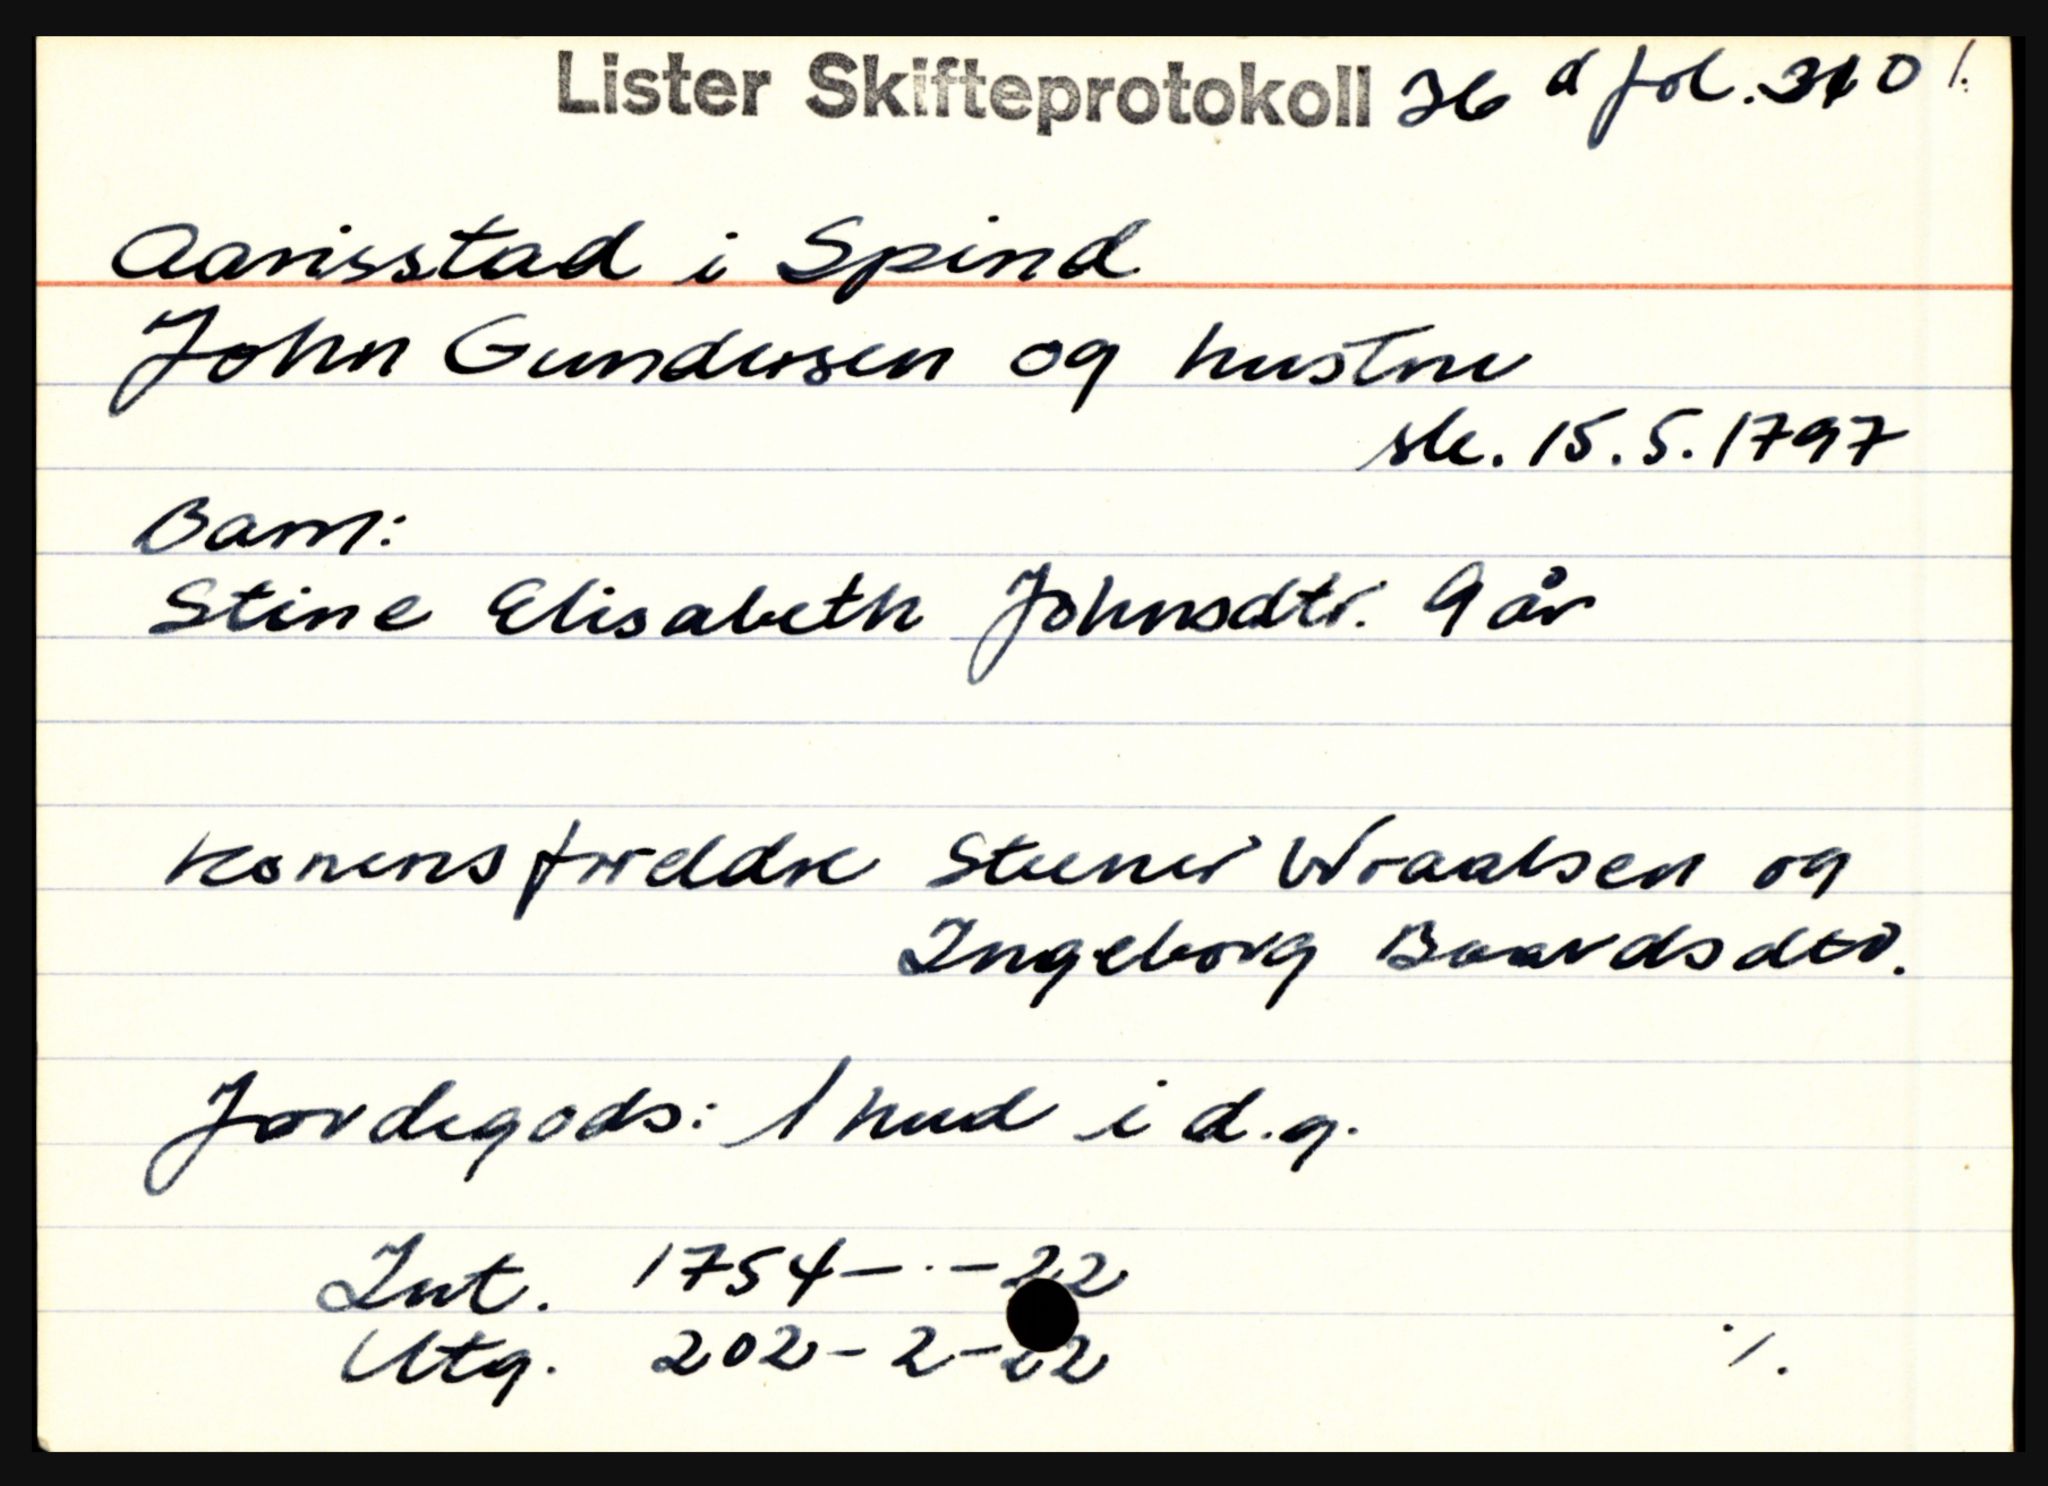 Lister Skifteprotokoll 36 d fol. 310 /:
Aarisstad i Spind
John Gundersen og hustru
sk. 15.5.1797
Barn:
Stine Elisabeth Johnsdtr. 9 år
Konens foreldre Steener Wraalsen og
Ingeborg Baardsdtr.
Jordegods: 1 hud i d.g.
Int. 1754-·-22
Utg. 202-2-22
./.